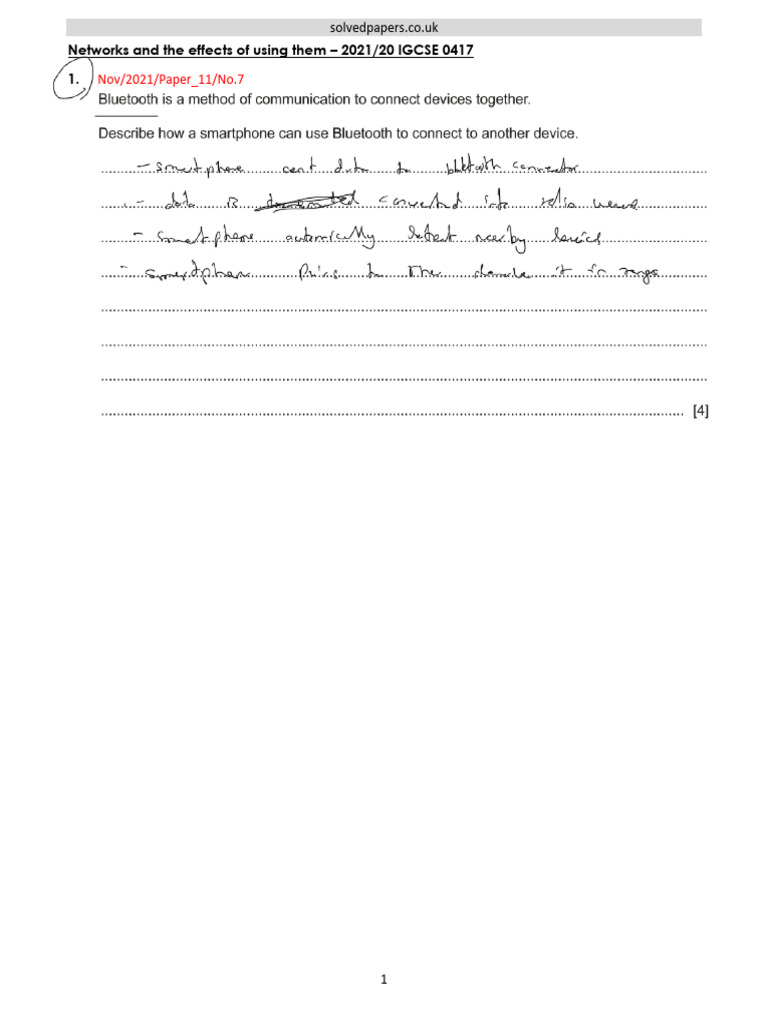 solvedpapers.co.uk
Networks and the effects of using them – 2021/20 IGCSE 0417
1. Nov/2021/Paper_11/No.7
Bluetooth is a method of communication to connect devices together.
Describe how a smartphone can use Bluetooth to connect to another device.
- smartphone cent data to connector
- data is converted into
- smartphone nearby
- smartphone to the it in range
[4]
1